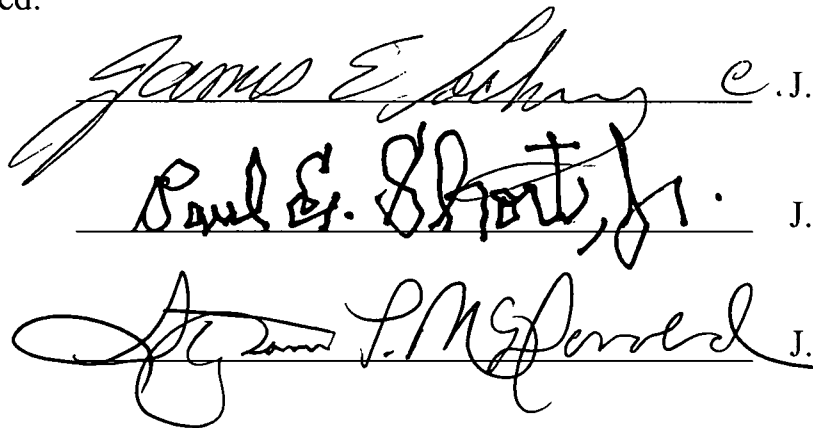 ed.
James E. Lockemy C.J.
Paul E. Short, Jr. J.
Stephen P. McDonald J.